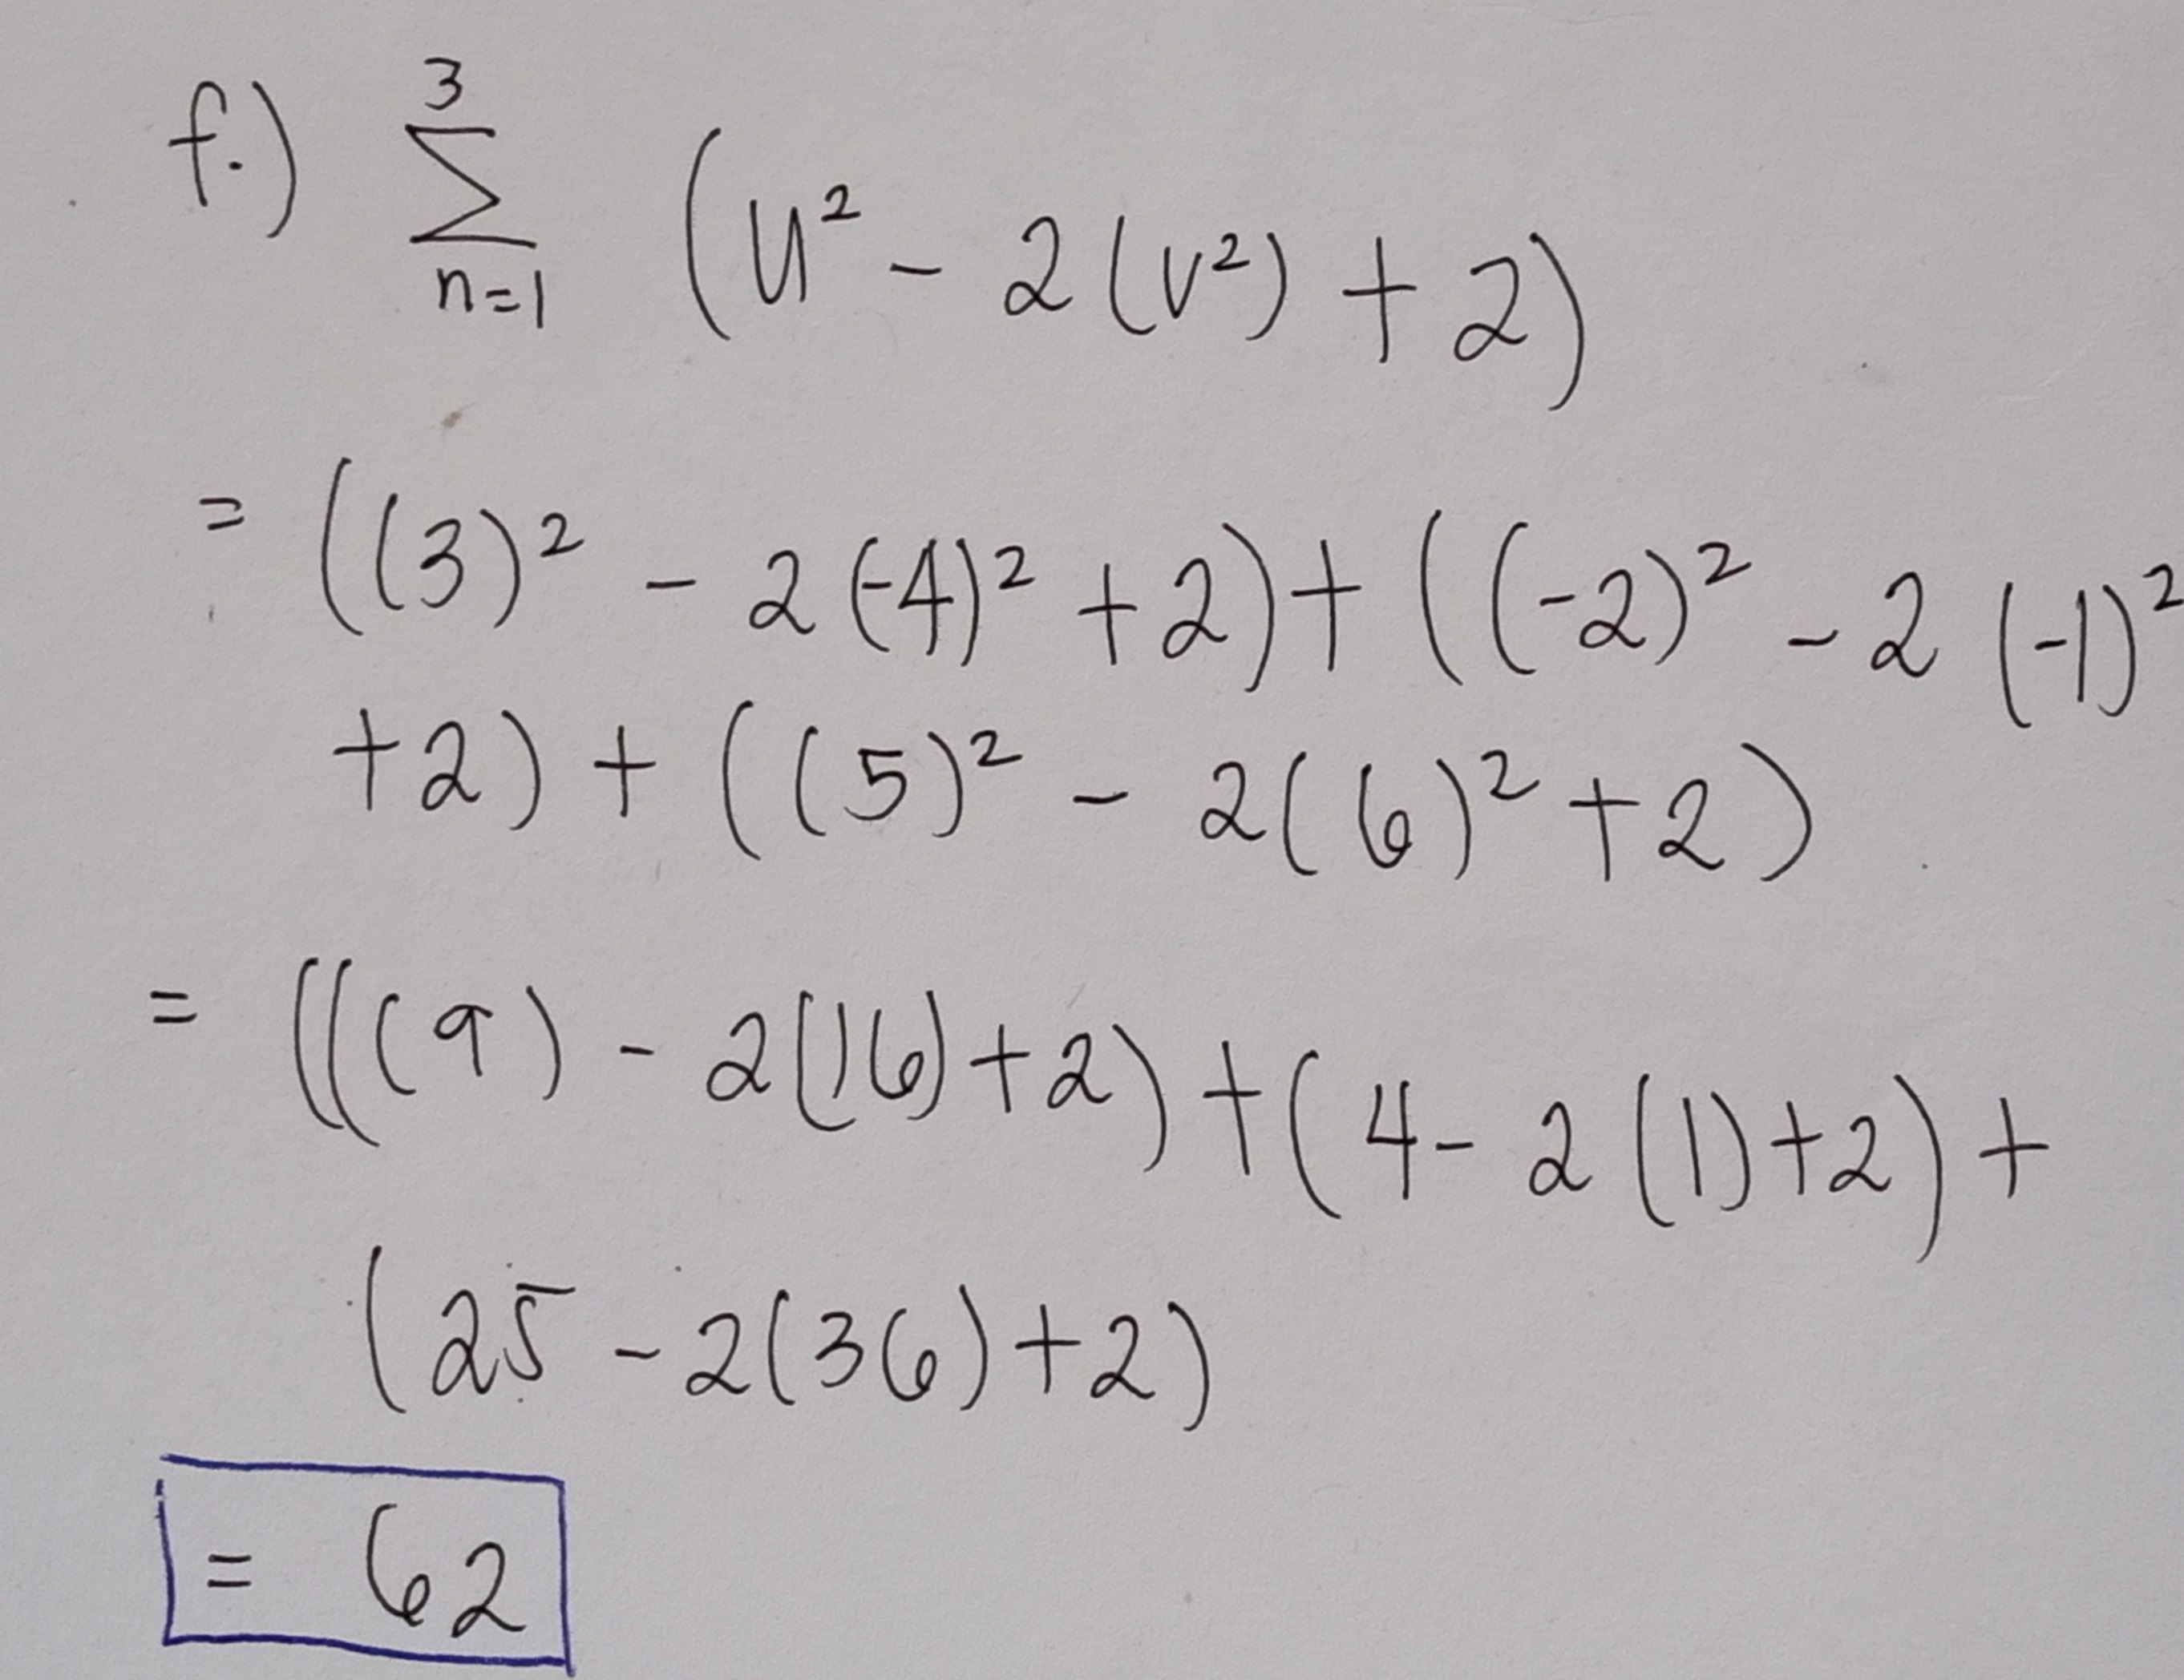 f.) 3∑n=1 (u² - 2(v²) + 2)
= ((3)² - 2(-4)² + 2) + ((-2)² - 2(-1)²
+2) + ((5)² - 2(6)² + 2)
= (((9) - 2(16) + 2) + (4 - 2(1) + 2) +
(25 - 2(36) + 2)
= 62